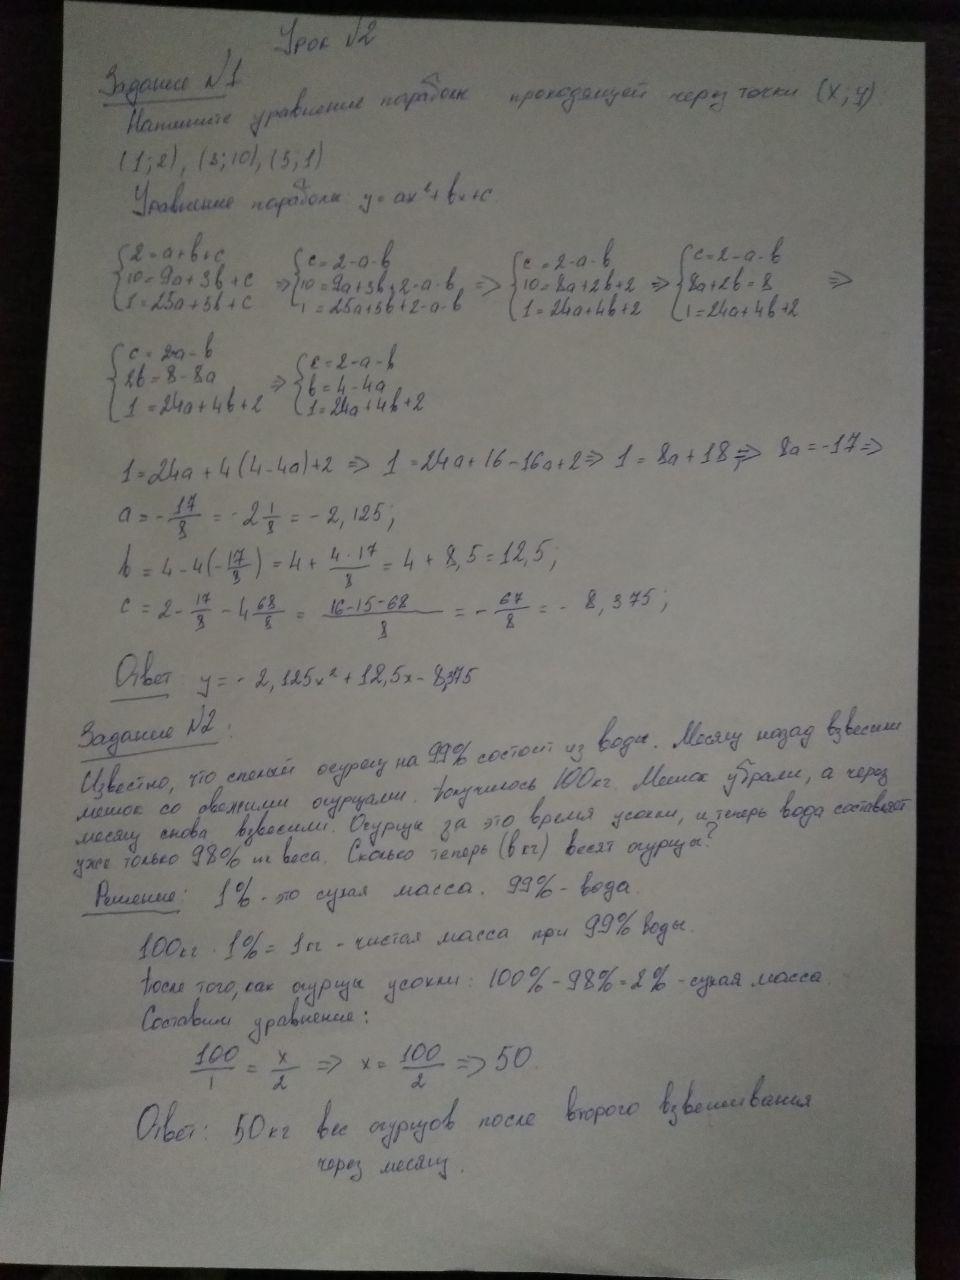 Урок №2
Задание №1
Напишите уравнение параболы проходящей через точки (x; y)
(1; 2), (3; 10), (5; 1)
Уравнение параболы y = ax² + bx + c
{2 = a + b + c ⇒ {c = 2 - a - b ⇒ {c = 2 - a - b ⇒ {c = 2 - a - b ⇒
10 = 9a + 3b + c 10 = 9a + 3b + 2 - a - b 10 = 8a + 2b + 2 8a + 2b = 8
1 = 25a + 5b + c 1 = 25a + 5b + 2 - a - b 1 = 24a + 4b + 2 1 = 24a + 4b + 2
{c = 2-a - b ⇒ {c = 2 - a - b
2b = 8 - 8a b = 4 - 4a
1 = 24a + 4b + 2 1 = 24a + 4b + 2
1 = 24a + 4(4 - 4a) + 2 ⇒ 1 = 24a + 16 - 16a + 2 ⇒ 1 = 8a + 18 ⇒ 8a = -17 ⇒
a = - 17/8 = - 2 1/8 = - 2,125;
b = 4 - 4(- 17/8) = 4 + 4·17/8 = 4 + 8,5 = 12,5;
c = 2 - 17/8 - 4 68/8 = 16-15-68/8 = - 67/8 = - 8,375;
Ответ: y = - 2,125x² + 12,5x - 8,375
Задание №2:
Известно, что спелый огурец на 99% состоит из воды. Месяц назад взвесили
мешок со свежими огурцами. Получилось 100 кг. Мешок убрали, а через
месяц снова взвесили. Огурцы за это время усохли, и теперь вода составляет
уже только 98% их веса. Сколько теперь (в кг) весят огурцы?
Решение: 1% - это сухая масса. 99% - вода.
100кг · 1% = 1кг - чистая масса при 99% воды.
После того, как огурцы усохли: 100% - 98% = 2% - сухая масса.
Составим уравнение:
100/1 = x/2 ⇒ x = 100/2 ⇒ 50
Ответ: 50 кг вес огурцов после второго взвешивания
через месяц.